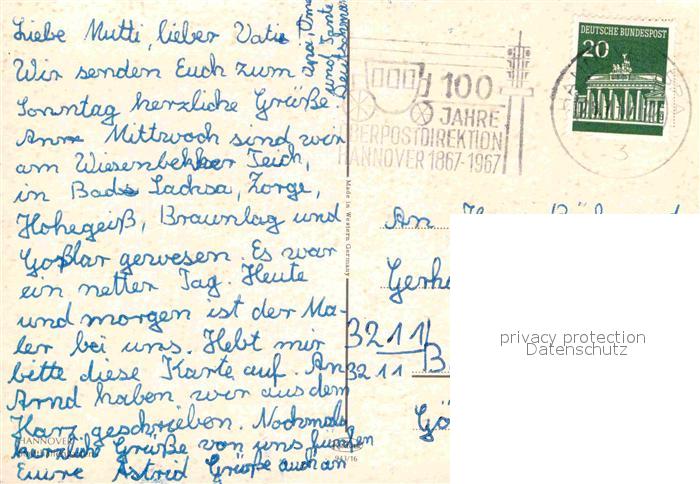 Liebe Mutti, lieber Vati
Wir senden Euch zum
Sonntag herzliche Grüße.
Am Mittwoch sind wir
am Wiesenbeker Teich,
in Bad Sachsa, Zorge,
Hohegeiß, Braunlag und
Goßlar gewesen. Es war
ein netter Tag. Heute
und morgen ist der Ma-
ler bei uns. Hebt mir
bitte diese Karte auf. An
Arnd haben wir aus dem
Harz geschrieben. Nochmals
herzliche Grüße von uns fünfen
Eure Astrid Grüße auch an
Opa, Oma
und Tante
HANNOVER
Made in Western Germany
941/16
100
JAHRE
OBERPOSTDIREKTION
HANNOVER 1867-1967
DEUTSCHE BUNDESPOST
20
3
An
3211
3211
privacy protection
Datenschutz